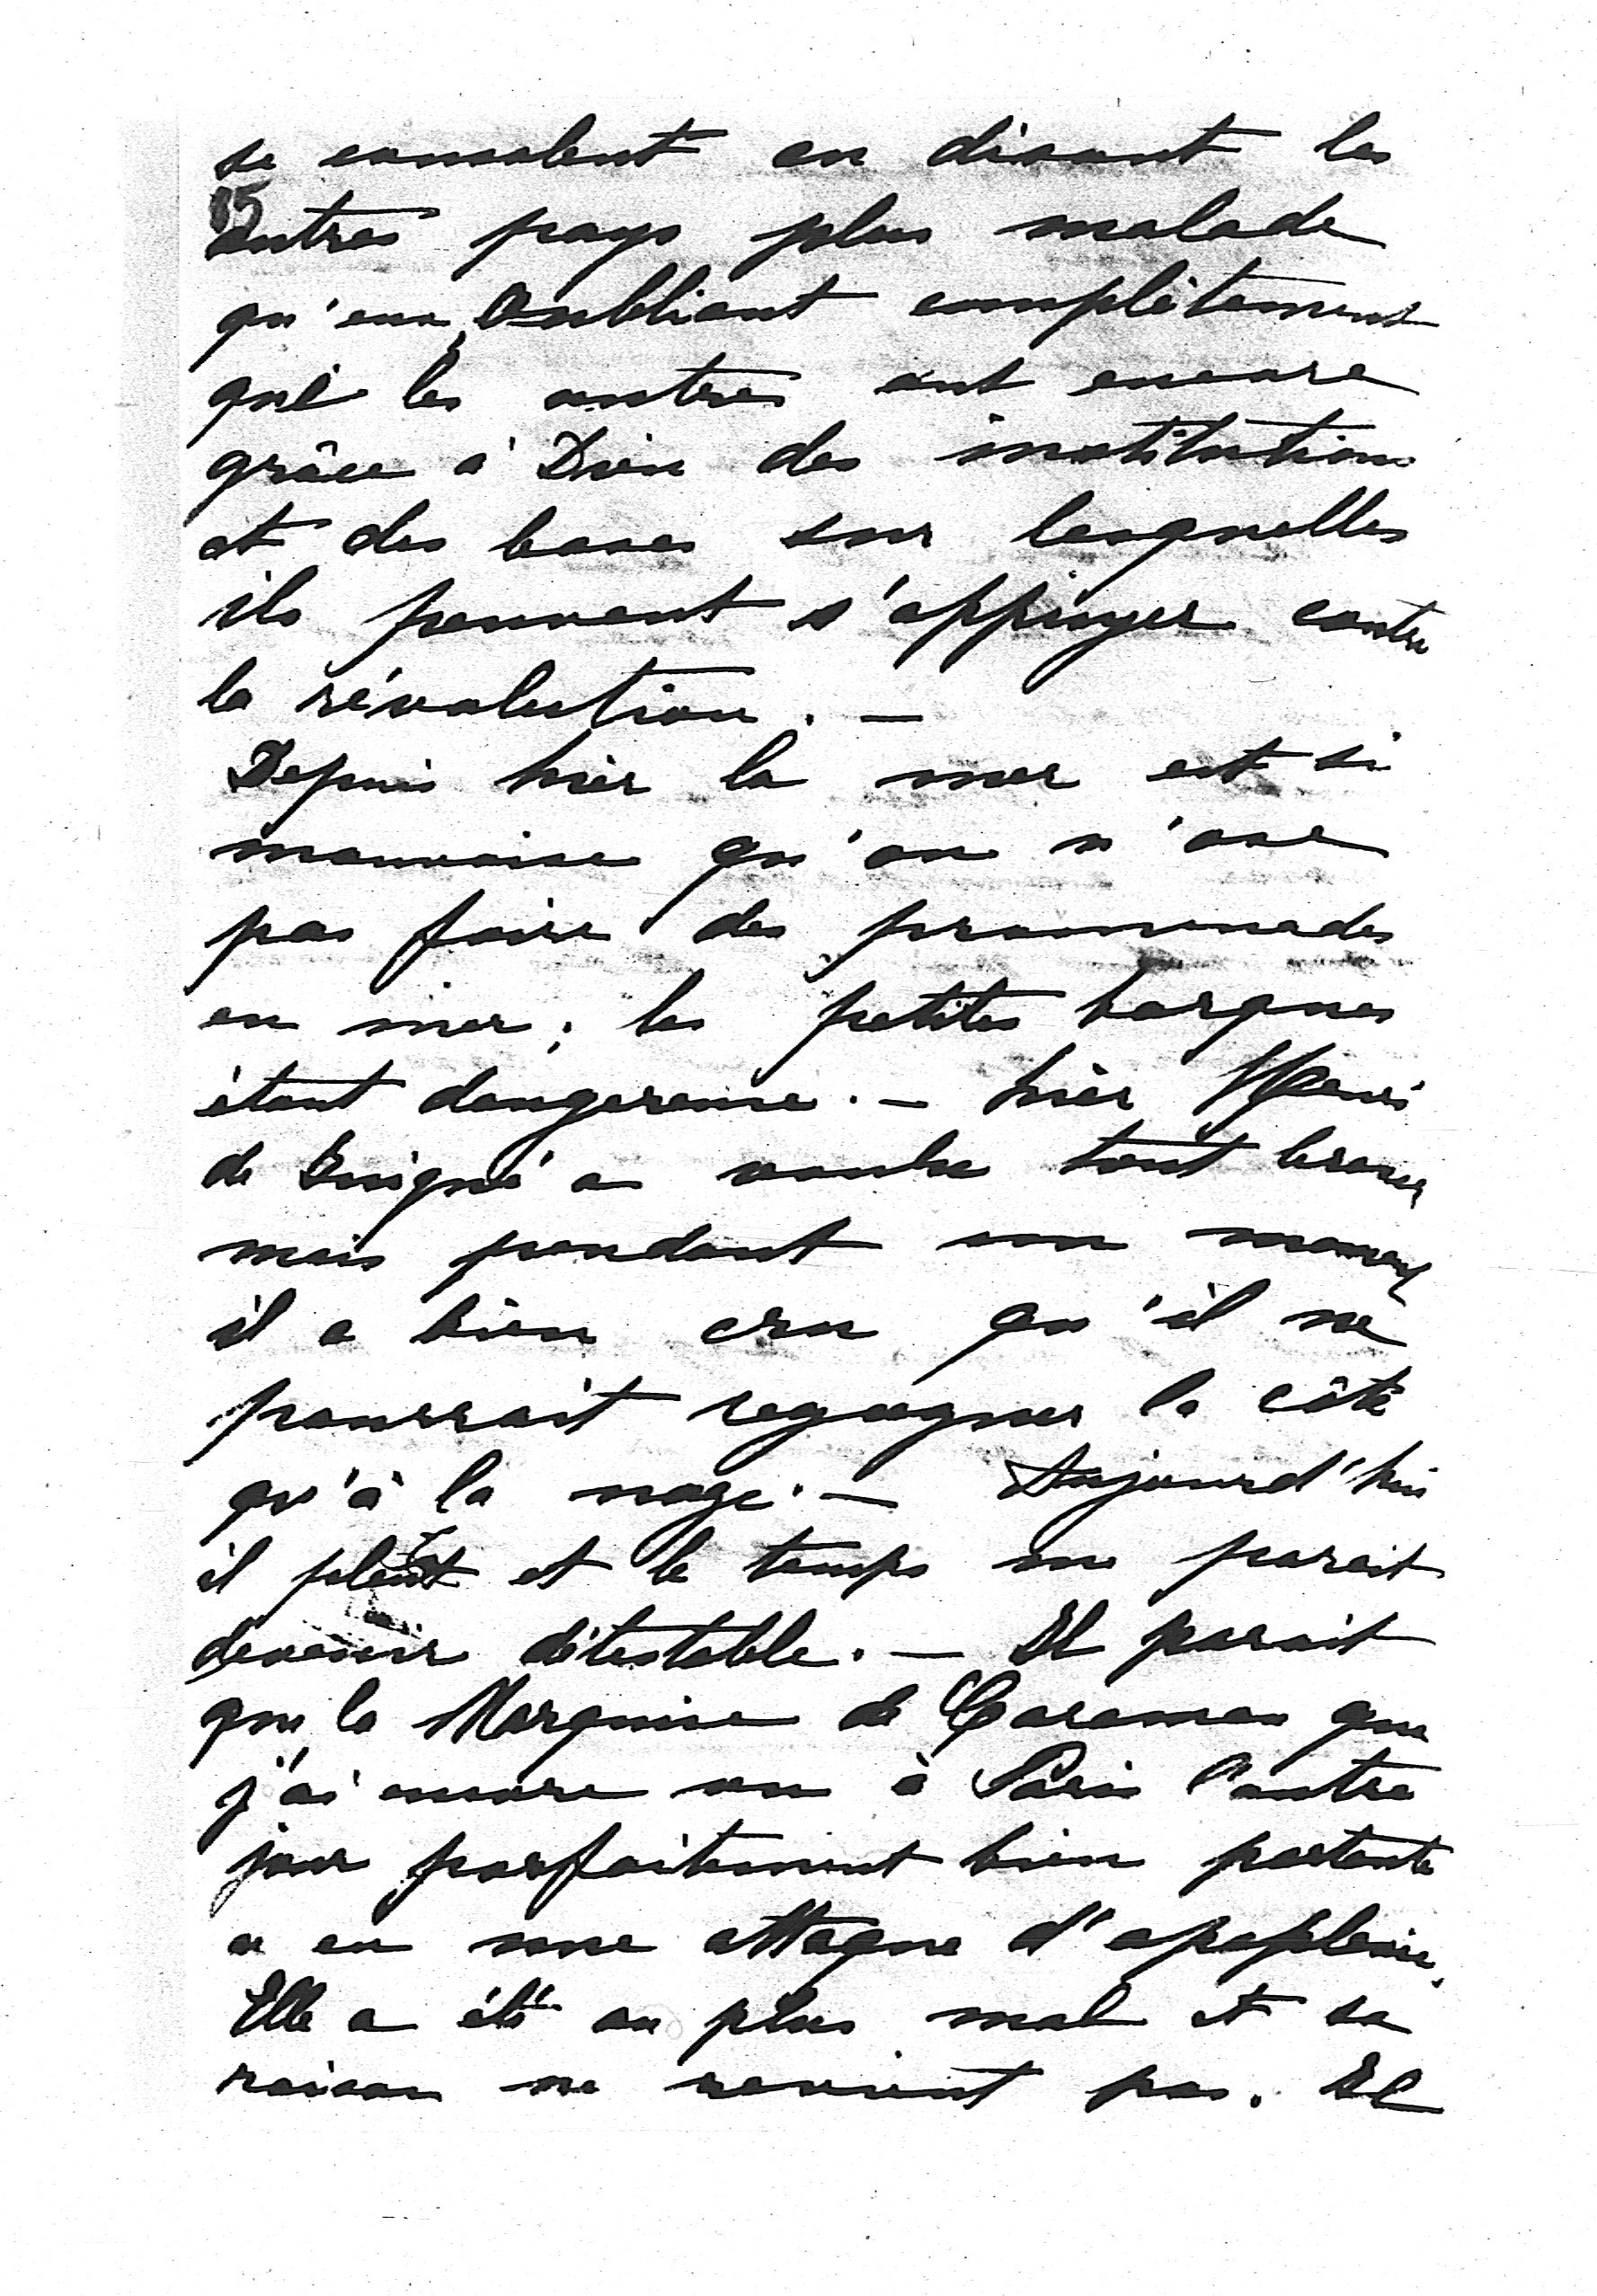 se consolent en disant les
15
autres pays plus malade
qu'eux, Oubliant complètement
que les autres ont encore
grâce à Dieu des institutions
et des bases sur lesquelles
ils peuvent s'appuyer contre
la révolution. —
Depuis hier la mer est si
mauvaise qu'on n'ose
pas faire des promenades
en mer; les petites barques
étant dangereuse. — hier Henri
de Guigné a voulu tout braver
mais pendant un moment
il a bien cru qu'il ne
pourrait regagner la côte
qu'à la nage. — Aujourd'hui
il pleut et le temps me parait
devenir détestable. — Il parait
que la Marquise de Caraman que
j'ai encore vu à Paris l'autre
jour parfaitement bien portante
a eu une attaque d'apoplexie.
Elle a été au plus mal et sa
raison ne revient pas. Il